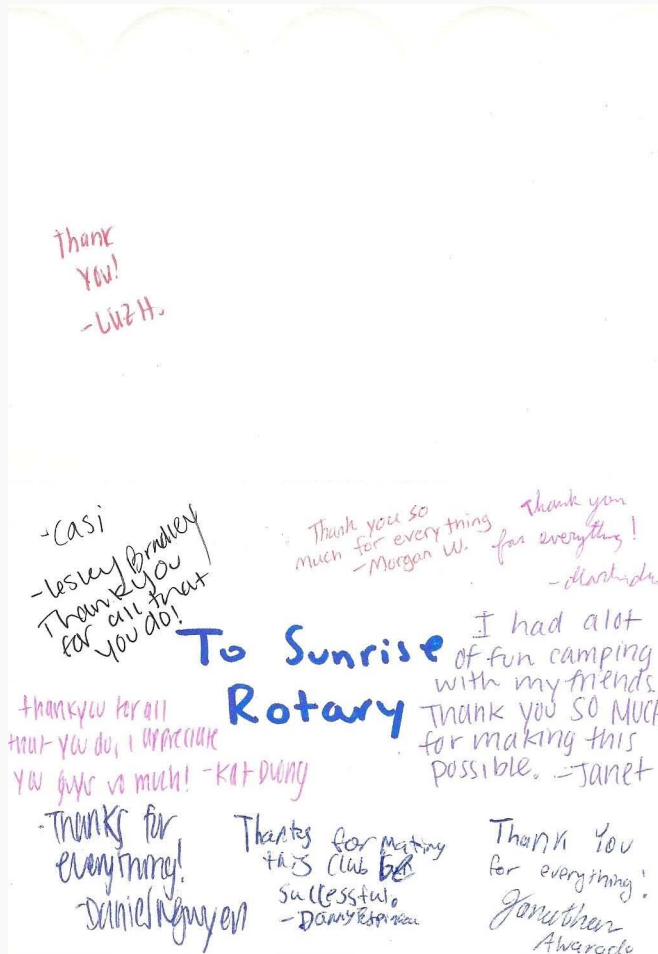 Thank
You!
-LUZ H.
-Casi
-Lesley Bradley
Thank you
for all that
you do!
Thank you so
much for everything
-Morgan W.
Thank you
for everything!
To Sunrise
Rotary
I had alot
of fun camping
with my friends.
THANK YOU SO MUCH
for making this
possible. -Janet
thankyou for all
that you do, I appreciate
you guys so much! -Kat Duong
-Thanks for
everything!
-Daniel Nguyen
Thanks for making
this Club
Successful.
-Danny
Thank You
for everything!
Jonathan
Alvarado